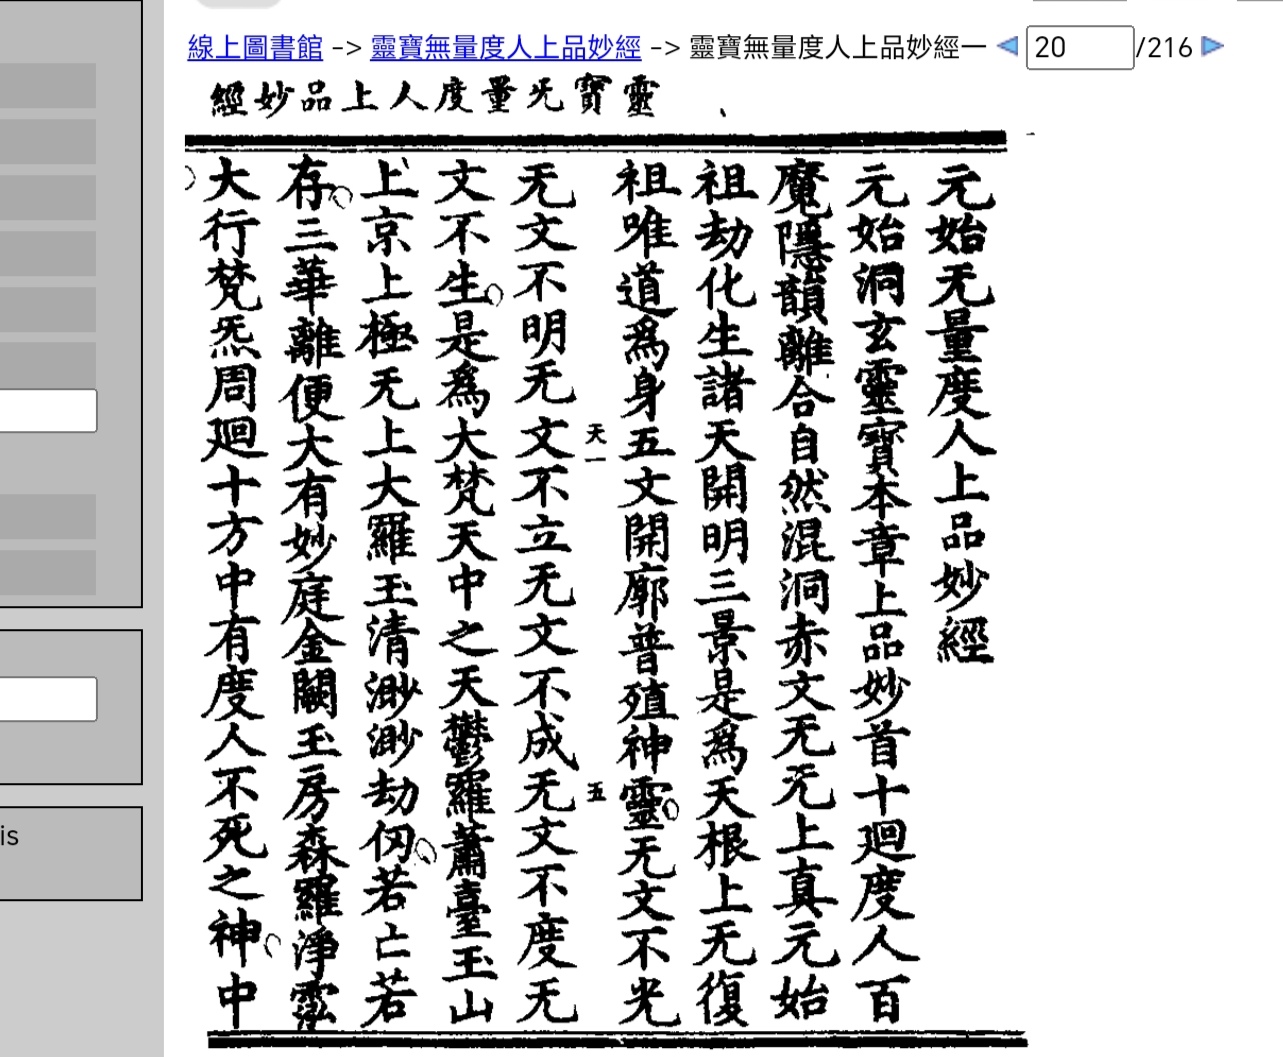 線上圖書館 -> 靈寶無量度人上品妙經 -> 靈寶無量度人上品妙經一 20 /216
靈寶旡量度人上品妙經
元始无量度人上品妙經
元始洞玄靈寶本章上品妙首十廻度人百
魔隱韻離合自然混洞赤文无旡上真元始
祖劫化生諸天開明三景是為天根上无復
祖唯道為身五文開廓普殖神靈无文不光
天一
五
无文不明无文不立无文不成无文不度无
文不生是為大梵天中之天鬱羅蕭臺玉山
上京上極无上大羅玉清渺渺劫仞若亡若
存三華離便大有妙庭金闕玉房森羅淨泓
大行梵炁周廻十方中有度人不死之神中
is